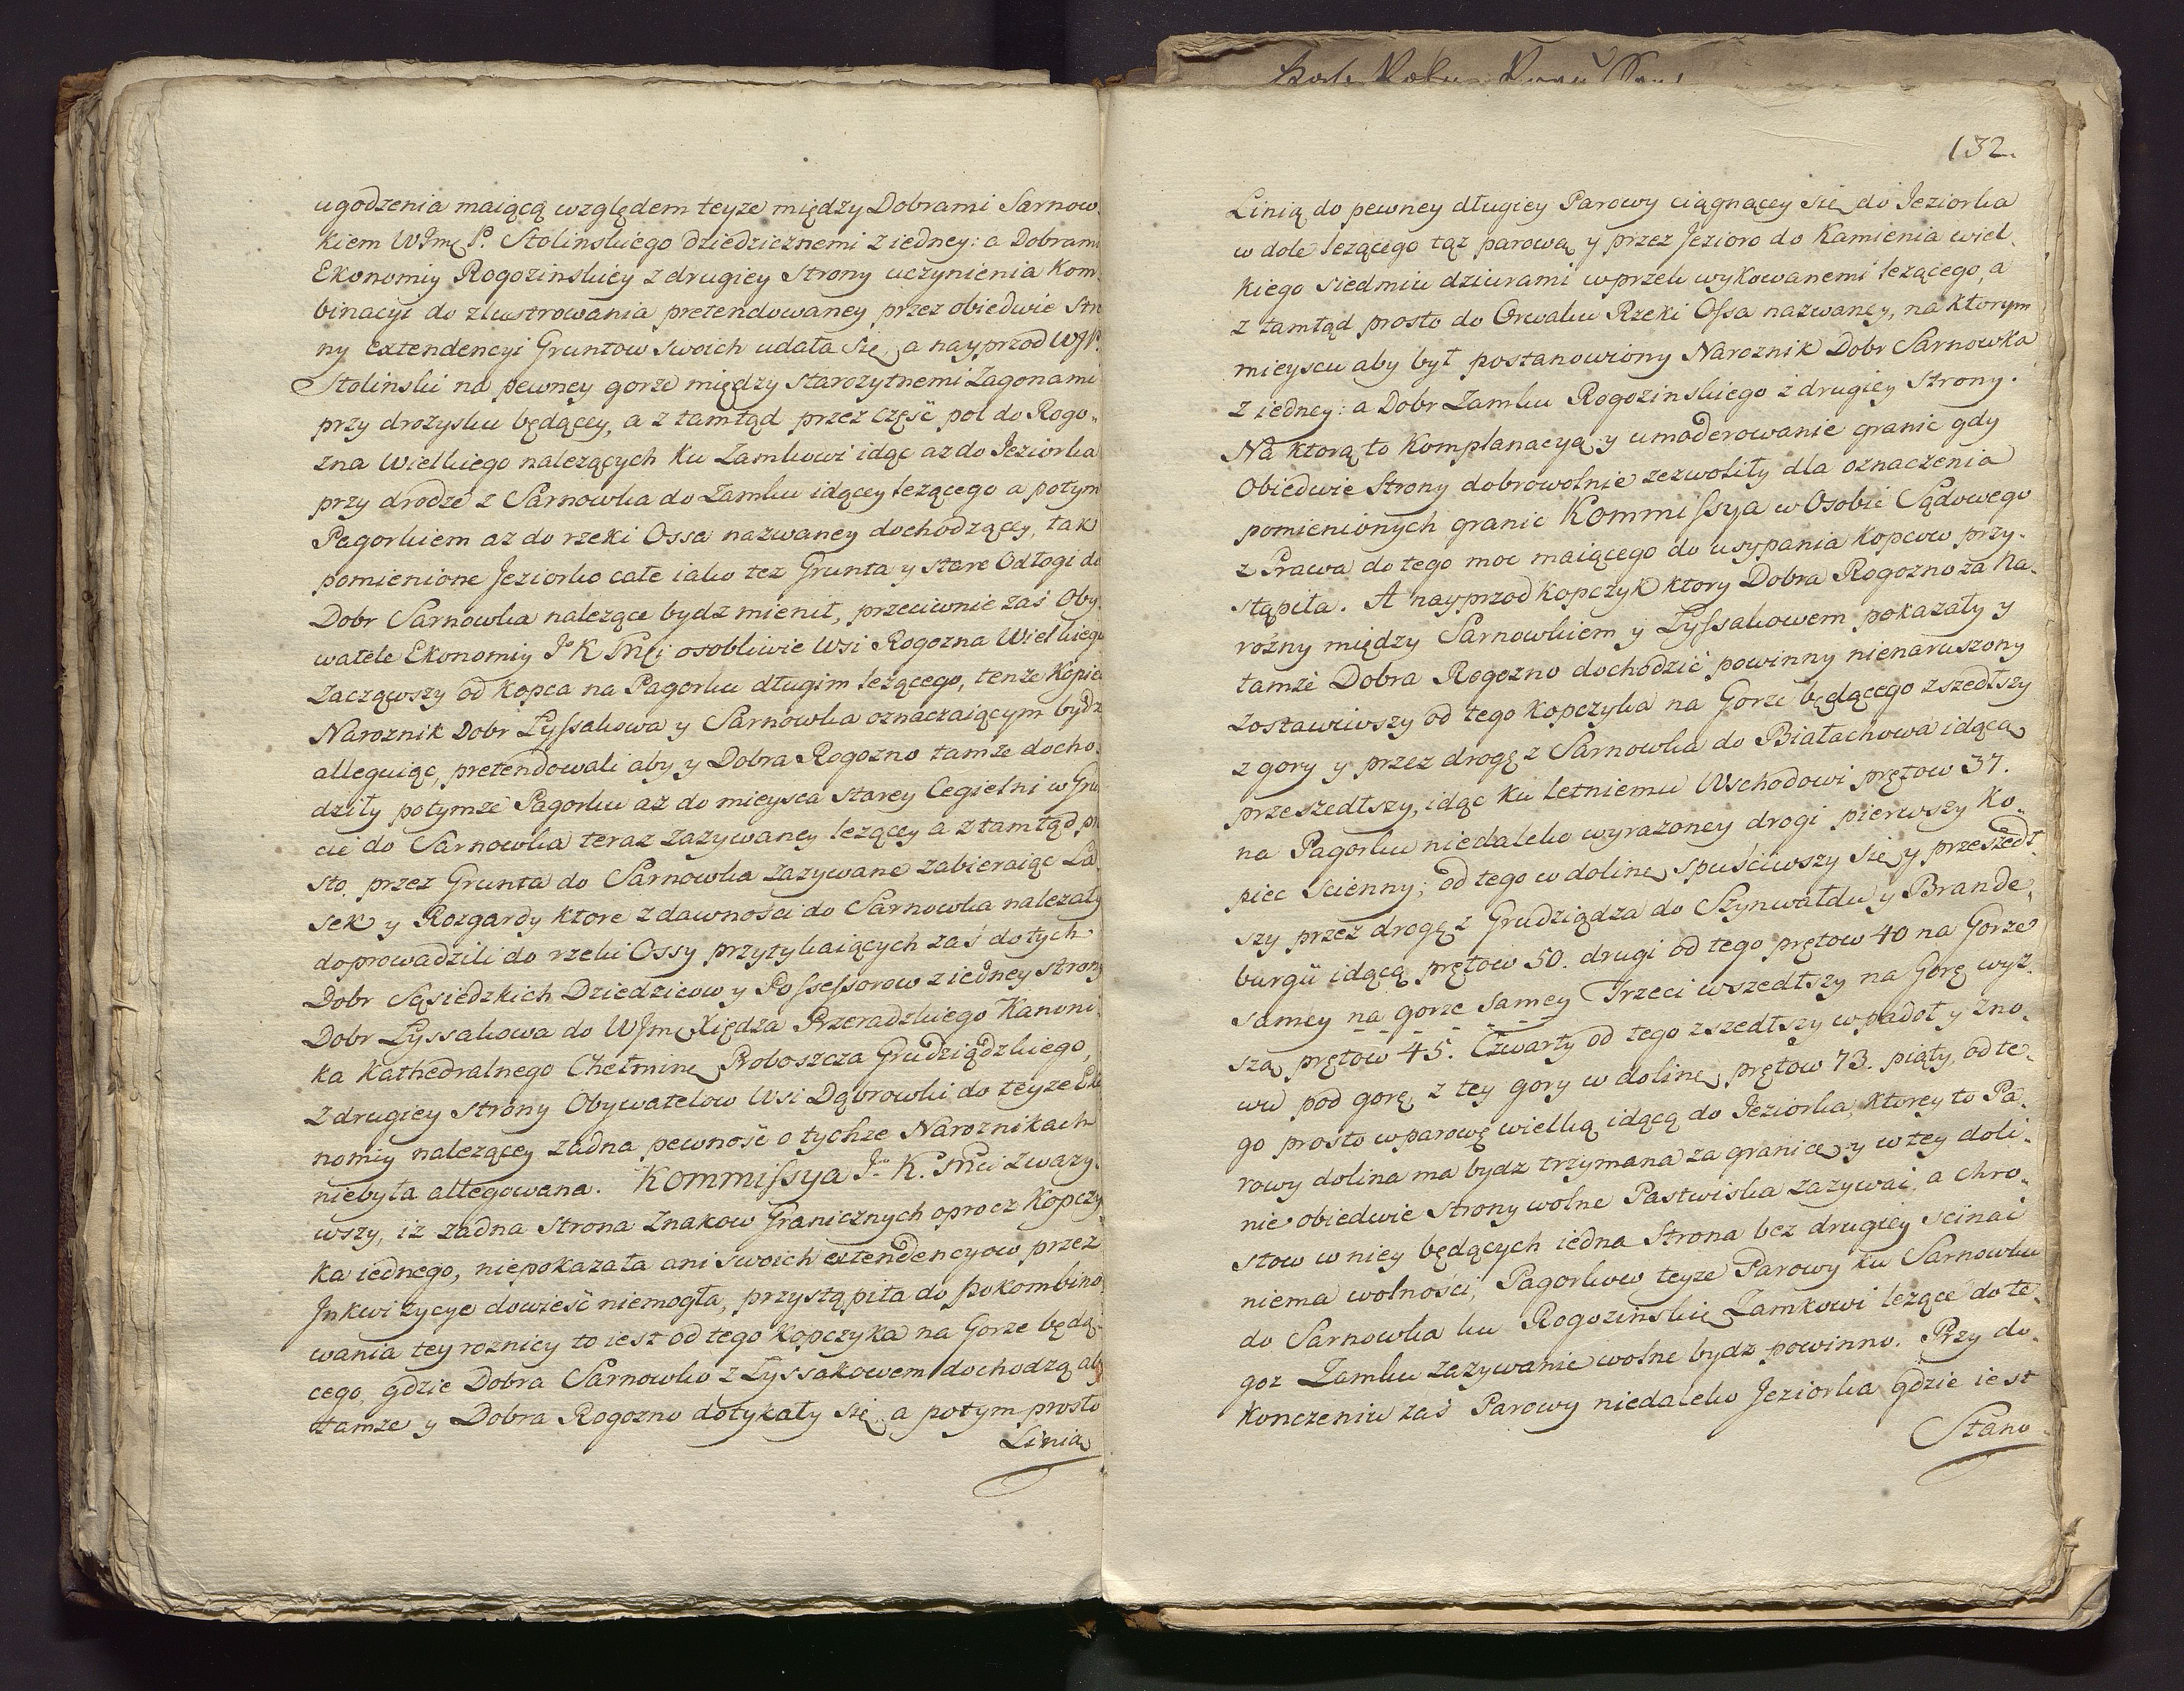 ugodzenia maiącą względem teyze między Dobrami Sarnow-
kiem WJmę P. Stolinskiego dziedzicznemi z iedney: a Dobrami
Ekonomiy Rogozinskiey z drugiey Strony uczynienia Kom-
binacyi do zlustrowania pretendowaney przez obiedwie Stro
ny extendencyi Gruntow swoich udała się, a nayprzod WJP.
Stolinski na pewney gorze między starozytnemi Zagonami
przy drozysku będącey, a z tamtąd przez część pol do Rogo-
zna Wielkiego nalezących Ku Zamkowi idąc az do Jeziorka
przy drodze z Sarnowka do Zamku idącey lezącego a potym
Pagorkiem az do rzeki Ossa nazwaney dochodzącey, tak
pomienione Jeziorko całe iako tez Grunta y stare Odłogi do
Dobr Sarnowka nalezące bydz mienił, przeciwnie zaś Oby-
watele Ekonomiy J K Mci osobliwie Wsi Rogozna Wielkiego
Zacząwszy od Kopca na Pagorku długim lezącego, tenze Kopiec
Naroznik Dobr Łyssakowa y Sarnowka oznaczaiącym bydz
alleguiąc, pretendowali aby y Dobra Rogozno tamze docho-
dziły potymze Pagorku az do mieysca starey Cegielni w Grun
cie do Sarnowka teraz zazywaney lezącey a z tamtąd pro
sto przez Grunta do Sarnowka zazywane zabieraiąc La
sek y Rozgardy ktore z dawności do Sarnowka nalezały
doprowadzili do rzeki Ossy przytykaiących zaś do tych
Dobr Sąsiedzkich Dziedzicow y Possessorow z iedney strony
Dobr Łyssakowa do WJmę Xiędza Przeradzkiego Kanoni-
ka Kathedralnego Chełminę Proboszcza Grudziądzkiego,
Z drugiey strony Obywatelow Wsi Dąbrowki do teyze Eko
nomiy nalezącey zadna pewność o tychze Naroznikach
niebyła allegowana. Kommissya J. K. Mci zwazy-
wszy, iz zadna strona Znakow Granicznych oprocz Kopczy-
ka iednego, niepokazała ani swoich extendencyow przez
Jnkwizycye dowieść niemogła, przystąpiła do pokombino-
wania tey roznicy to iest od tego Kopczyka na Gorze będą-
cego, gdzie Dobra Sarnowko z Łyssakowem dochodzą aby
tamze y Dobra Rogozno dotykały się, a potym prosto
Linią
132.
Linią do pewney długiey Parowy ciągnącey się do Jeziorka
w dole lezącego tąz parową y przez Jezioro do Kamienia wiel-
kiego siedmiu dziurami wprzek wykowanemi lezącego, a
z tamtąd prosto do Orwaku Rzeki Ossa nazwaney, na ktorym
mieyscu aby był postanowiony Naroznik Dobr Sarnowka
z iedney: a Dobr Zamku Rogozinskiego z drugiey Strony.
Na ktorą to Komplanacyą y umoderowanie granic gdy
Obiedwie Strony dobrowolnie zezwoliły dla oznaczenia
pomienionych granic Kommissya w Osobie Sądowego
z Prawa do tego moc maiącego do usypania Kopcow przy-
stąpiła. A nayprzod Kopczyk ktory Dobra Rogozno za Na-
rozny między Sarnowkiem y Łyssakowem pokazały y
tamze Dobra Rogozno dochodzić powinny nienaruszony
zostawiwszy od tego Kopczyka na Gorze będącego zszedłszy
z gory y przez drogę z Sarnowka do Białachowa idącą
przeszedłszy, idąc Ku letniemu Wschodowi prętow 37.
na Pagorku niedaleko wyrazoney drogi pierwszy Ko-
piec Scienny; od tego w dolinę spuściwszy się y przeszedł-
szy przez drogę z Grudziądza do Szynwałdu y Brande-
burgu idącą prętow 50. drugi od tego prętow 40 na Gorze
samey na gorze samey Trzeci wszedłszy na Gorę wyz-
szą prętow 45. Czwarty od tego zszedłszy w padoł y Zno-
wu pod gorę z tey gory w dolinę prętow 73. piąty, od te-
go prosto w parowę wielką idącą do Jeziorka, Ktorey to Pa-
rowy dolina ma bydz trzymana za granicę y w tey doli-
nie obiedwie strony wolne Pastwiska zazywać, a chro-
stow w niey będących iedna Strona bez drugiey scinać
niema wolności, Pagorkow teyze Parowy ku Sarnowku
do Sarnowka ku Rogozinskie Zamkowi lezące do te-
goz Zamku zazywanie wolne bydz powinno. Przy do-
konczeniu zaś Parowy niedaleko Jeziorka gdzie iest
Stano